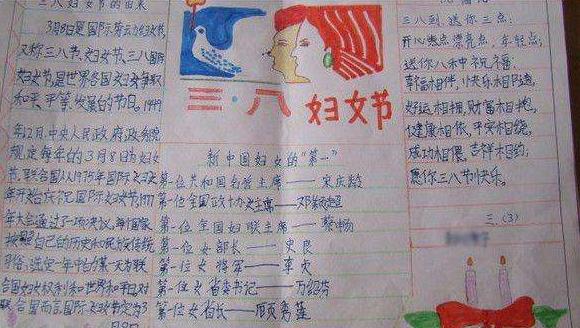 三八妇女节的由来
3月8日是国际劳动妇女节,
又称三八节、妇女节、三八国际
妇女节,是世界各国妇女争取
和平、平等、发展的节日。1949
年12月,中央人民政府政务院
规定每年的3月8日为妇女
节。联合国从1975年国际妇女
年开始庆祝国际妇女节,1977
年大会通过了一项决议,每个国家
按照自己的历史和民族传统
习俗,选定一年中的某一天为联
合国妇女权利和世界和平日。对
联合国而言,国际妇女节定为3
月8日
三·八妇女节
新中国妇女的"第一"
第一位共和国名誉主席——宋庆龄
第一位全国政协主席——邓颖超
第一位全国妇联主席——蔡畅
第一位女部长——史良
第一位女将军——李贞
第一位女省委书记——万绍芬
第一位女省长——顾秀莲
三八到,送你三点:
开心点漂亮点,年轻点;
送你八和中祝福:
幸福相伴,快乐相随,
好运相拥,财富相抱,
健康相依,平安相绕,
成功相偎,吉祥相约;
愿你三八节快乐。
三.(3)